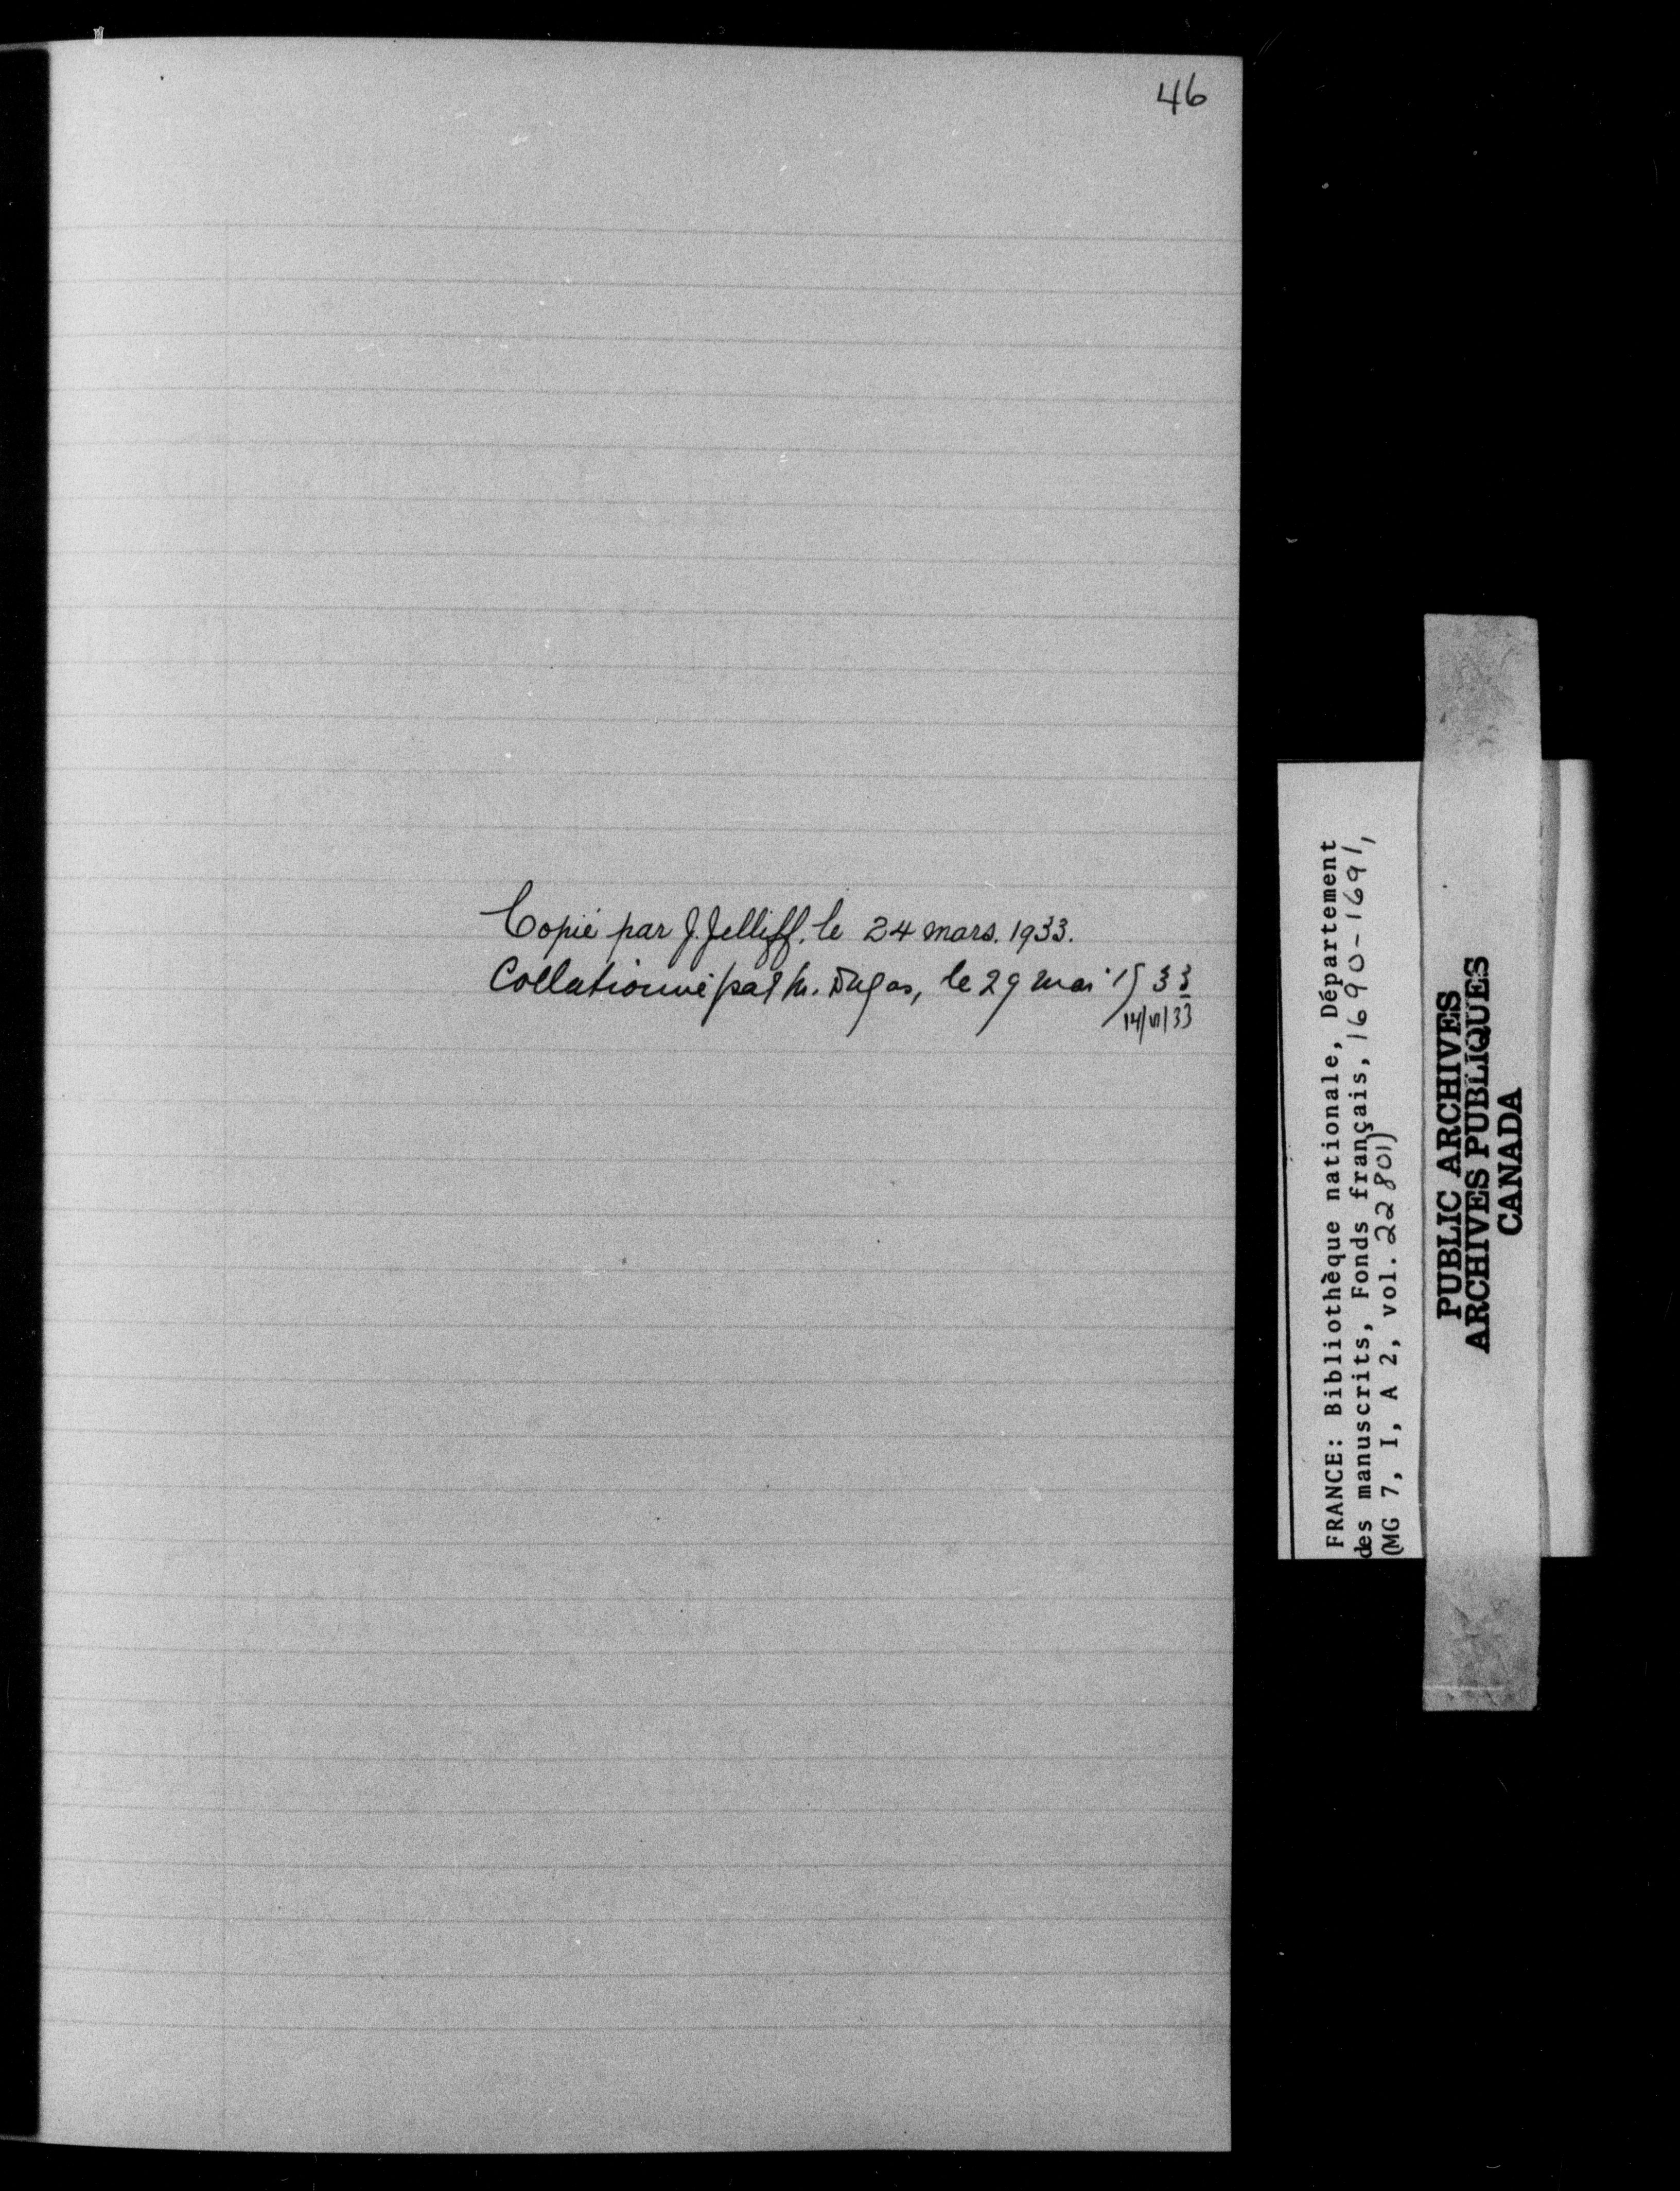 46
Copié par J. Jelliff. le 24 mars. 1933.
Collationné par M. Dugas, le 29 mai 1933
14/VI/33
FRANCE: Bibliothèque nationale, Département
des manuscrits, Fonds français, 1690-1691,
(MG 7, I, A 2, vol. 22801)
PUBLIC ARCHIVES
ARCHIVES PUBLIQUES
CANADA